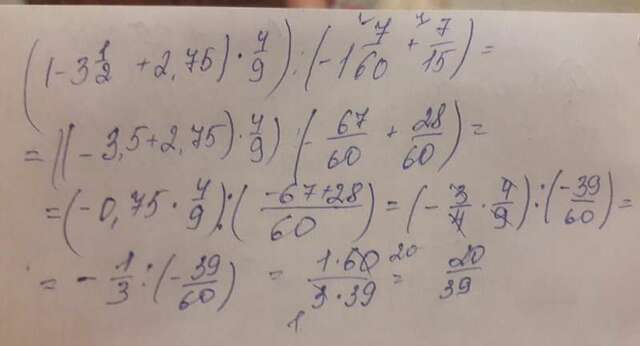 ((-3 1/2 + 2,75) · 4/9) : (-1 7/60 + 7/15) =
= ((-3,5+2,75) · 4/9) : (- 67/60 + 28/60) =
= (-0,75 · 4/9) : ((-67+28)/60) = (- 3/4 · 4/9) : (-39/60) =
= - 1/3 : (- 39/60) = (1·60 20)/(3·39 1) = 20/39